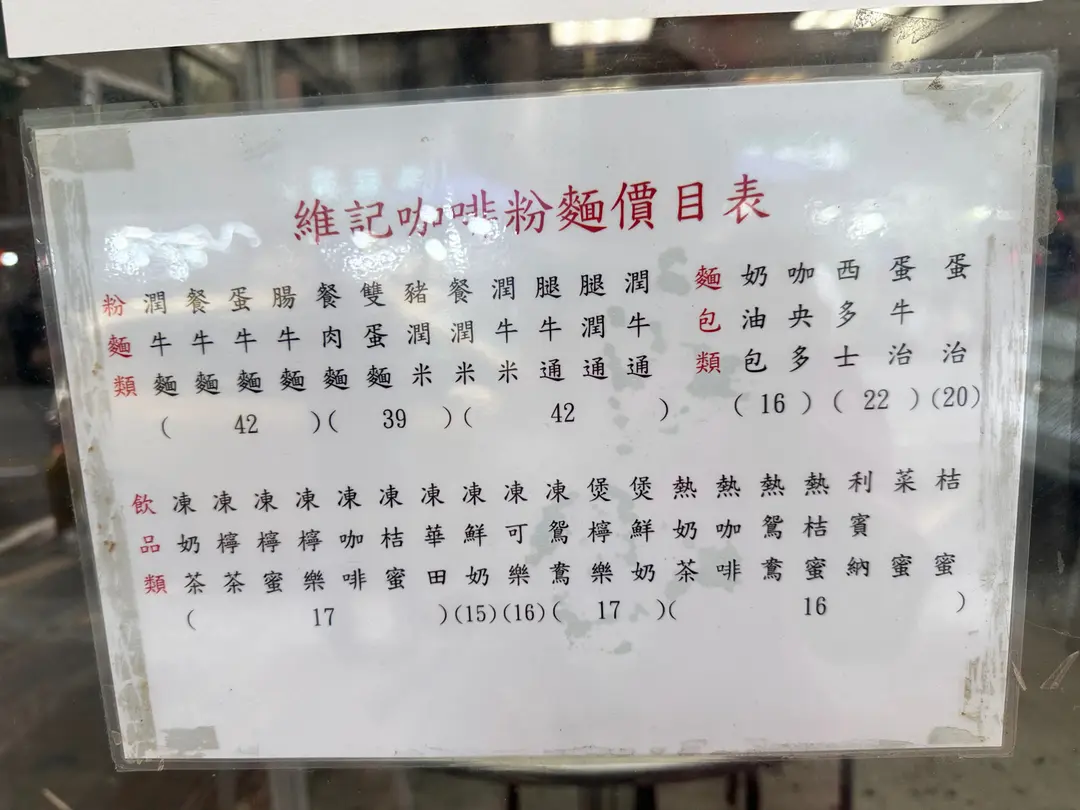 維記咖啡粉麵價目表
粉麵類
潤牛麵
餐牛麵
蛋牛麵
腸牛麵
( 42 )
餐肉麵
雙蛋麵
( 39 )
豬潤米
餐潤米
潤牛米
腿牛通
腿潤通
潤牛通
( 42 )
麵包類
奶油包
咖央多
( 16 )
西多士
蛋牛治
( 22 )
蛋治
(20)
飲品類
凍奶茶
凍檸茶
凍檸蜜
凍檸樂
凍咖啡
凍桔蜜
凍華田
( 17 )
凍鮮奶
(15)
凍可樂
(16)
凍鴛鴦
煲檸樂
煲鮮奶
( 17 )
熱奶茶
熱咖啡
熱鴛鴦
熱桔蜜
利賓納
菜蜜
桔蜜
( 16 )